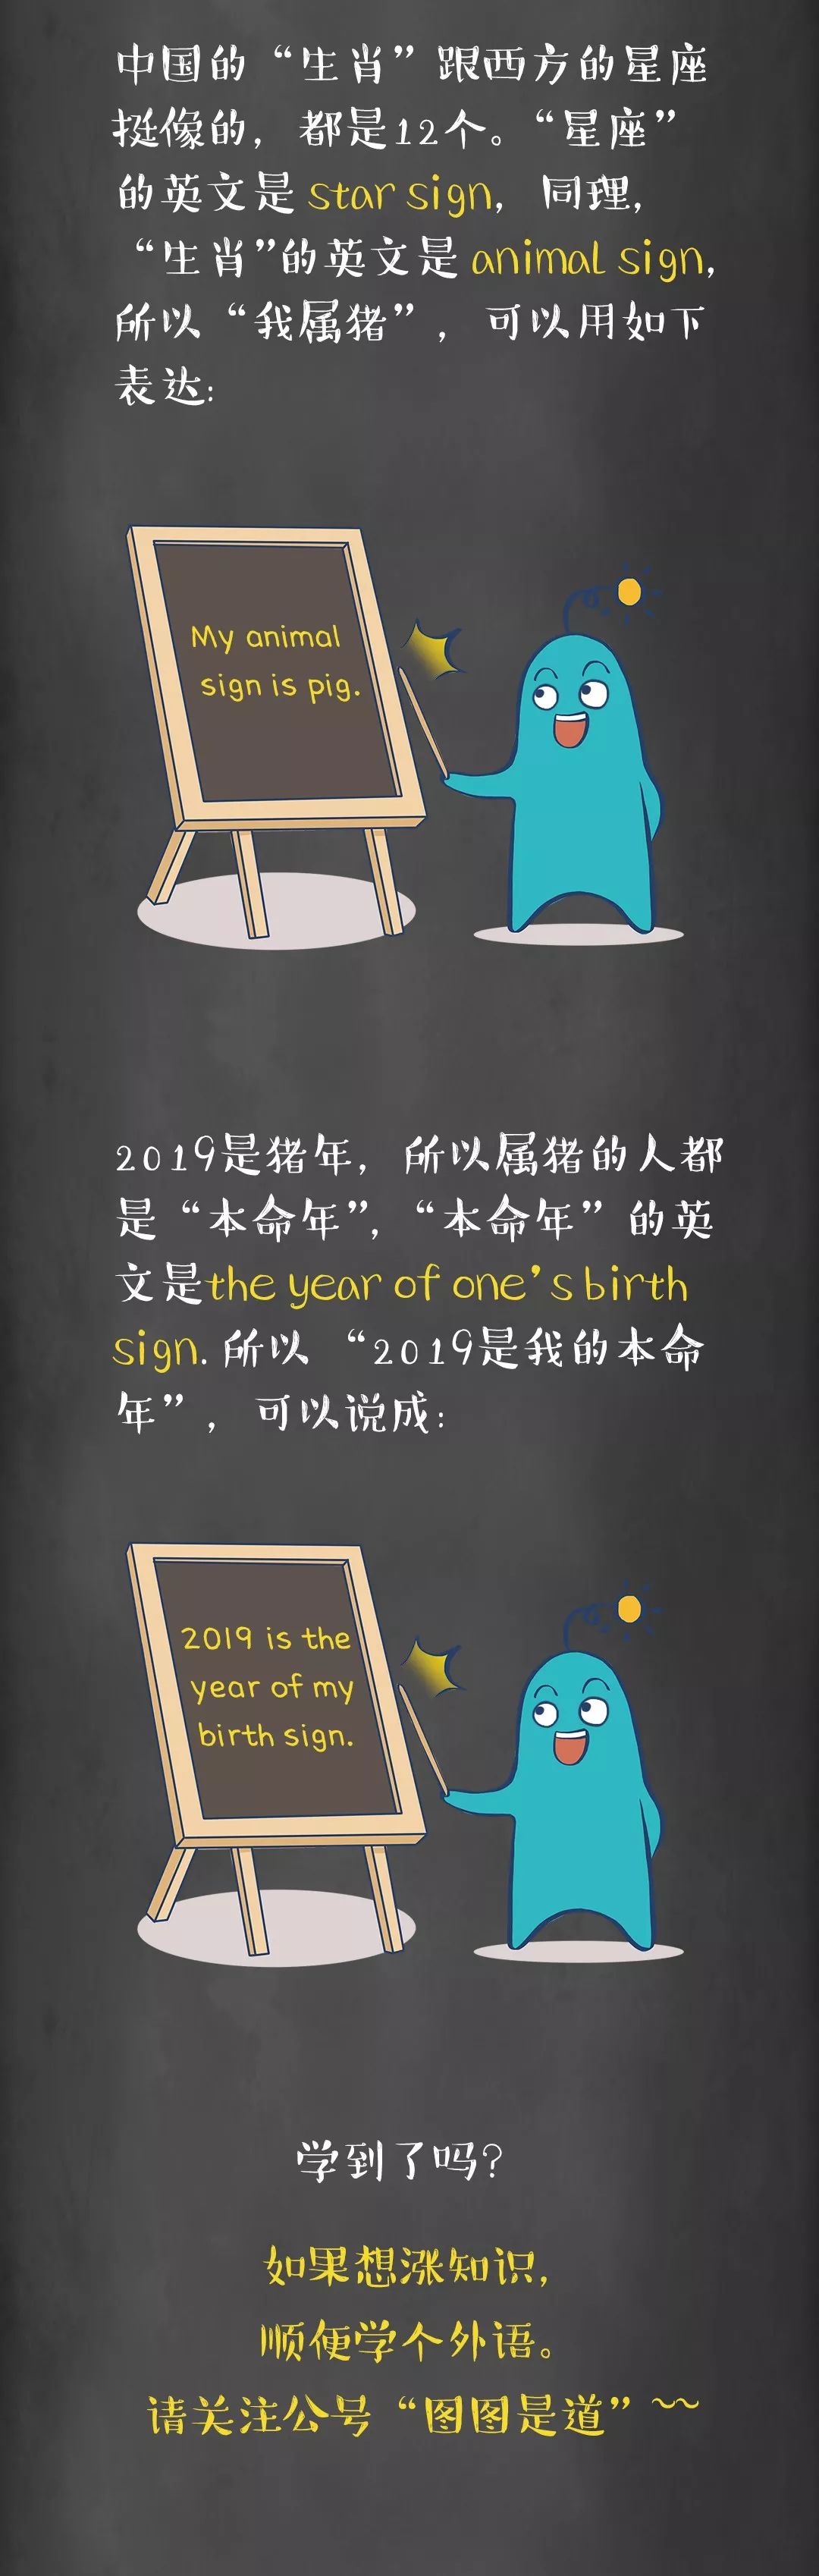 中国的“生肖”跟西方的星座
挺像的，都是12个。“星座”
的英文是 star sign，同理，
“生肖”的英文是 animal sign，
所以“我属猪”，可以用如下
表达：
My animal
sign is pig.
2019是猪年，所以属猪的人都
是“本命年”，“本命年”的英
文是the year of one's birth
sign. 所以 “2019是我的本命
年”，可以说成：
2019 is the
year of my
birth sign.
学到了吗？
如果想涨知识，
顺便学个外语。
请关注公号“图图是道”~~